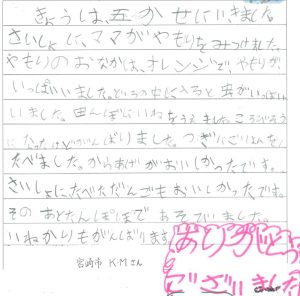 きょうは、五かせにいきました
さいしょに、ママがやもりをみつけました。
やもりのおなかは、オレンジで、やもりが
いっぱいいました。どろの中に入ると、虫がいっぱい
いました。田んぼにいねをうえました。ころびそうに
なったけどがんばりました。つぎにごはんを
たべました。からあげがおいしかったです。
さいしょにたべただんごもおいしかったです。
そのあとたんぼであそびました。
いねかりもがんばります
ありがとう
ございました
宮崎市 K・Mさん